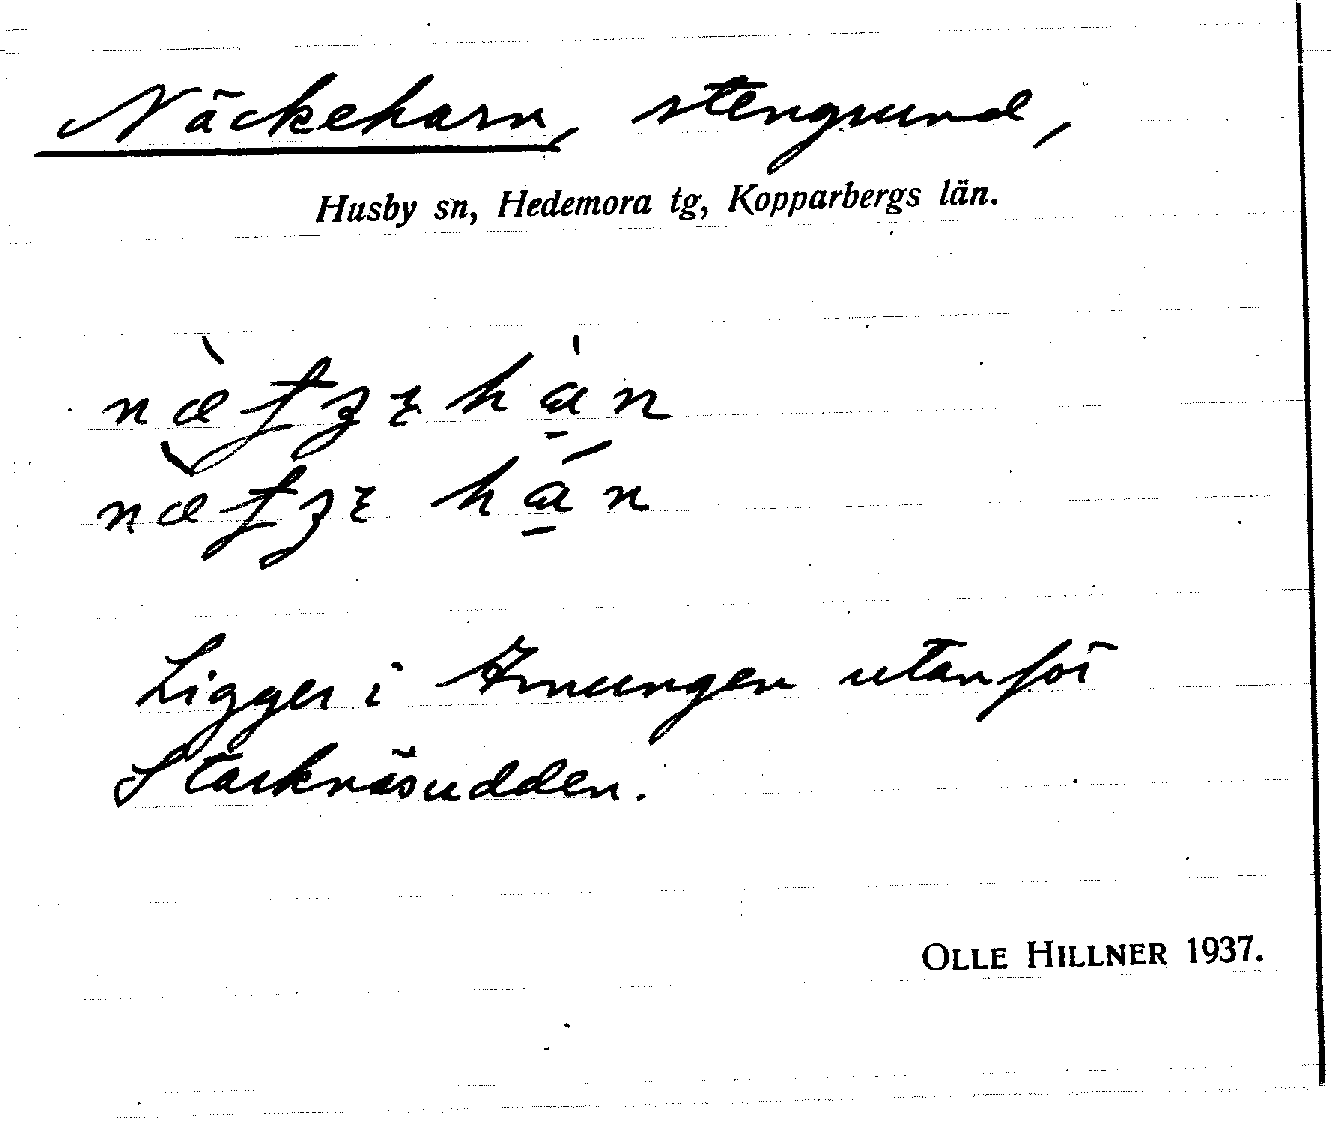 Näckeharn, stengrund,
Husby sn, Hedemora tg, Kopparbergs län.
Ligger i Amungen utanför
Starknäsudden.
OLLE HILLNER 1937.